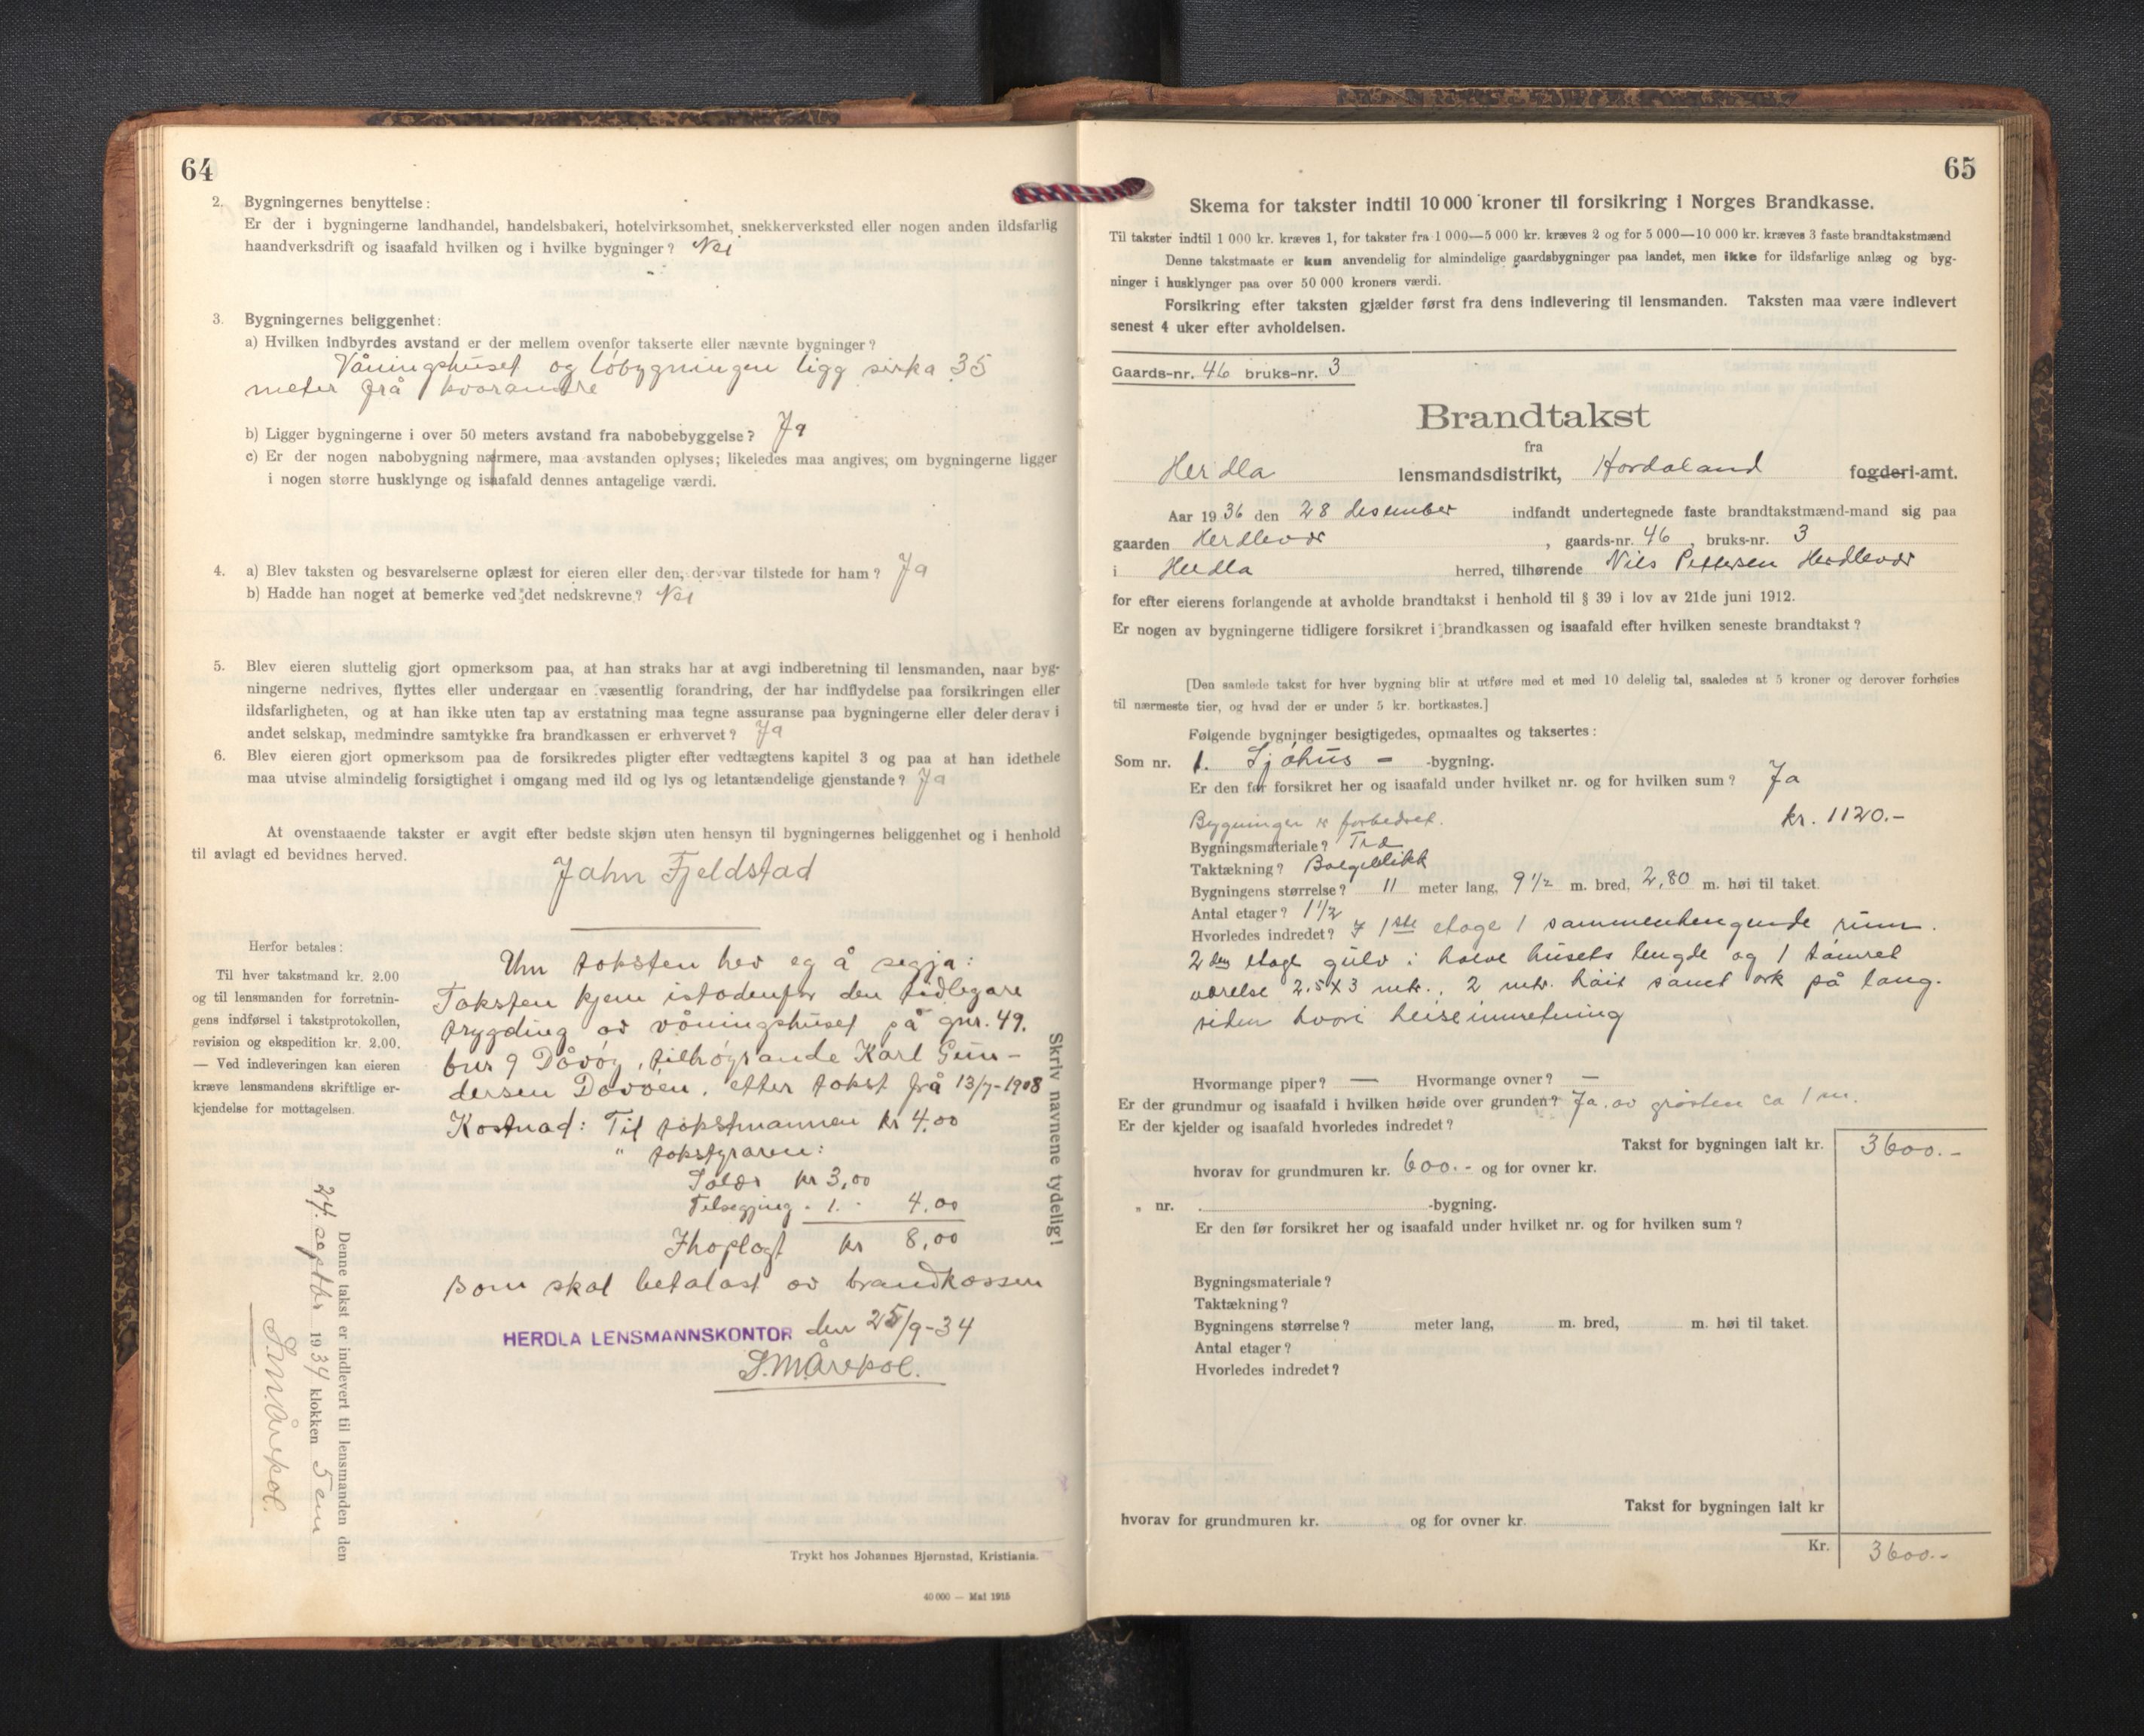 64
2. Bygningernes benyttelse:
Er der i bygningerne landhandel, handelsbakeri, hotelvirksomhet, snekkerverksted eller nogen anden ildsfarlig
haandverksdrift og isaafald hvilken og i hvilke bygninger? Nei
3. Bygningernes beliggenhet:
a) Hvilken indbyrdes avstand er der mellem ovenfor takserte eller nævnte bygninger?
Våningshuset og løbygningen ligg sirka 35
meter frå kvarandre
b) Ligger bygningerne i over 50 meters avstand fra nabobebyggelse? Ja
c) Er der nogen nabobygning nærmere, maa avstanden oplyses; likeledes maa angives, om bygningerne ligger
i nogen større husklynge og isaafald dennes antagelige værdi.
4. a) Blev taksten og besvarelserne oplæst for eieren eller den, der var tilstede for ham? Ja
b) Hadde han noget at bemerke ved det nedskrevne? Nei
5. Blev eieren sluttelig gjort opmerksom paa, at han straks har at avgi indberetning til lensmanden, naar byg-
ningerne nedrives, flyttes eller undergaar en væsentlig forandring, der har indflydelse paa forsikringen eller
ildsfarligheten, og at han ikke uten tap av erstatning maa tegne assuranse paa bygningerne eller deler derav i
andet selskap, medmindre samtykke fra brandkassen er erhvervet? Ja
6. Blev eieren gjort opmerksom paa de forsikredes pligter efter vedtægtens kapitel 3 og paa at han idethele
maa utvise almindelig forsigtighet i omgang med ild og lys og letantændelige gjenstande? Ja
At ovenstaaende takster er avgit efter bedste skjøn uten hensyn til bygningernes beliggenhet og i henhold
til avlagt ed bevidnes herved.
John Fjeldstad
Herfor betales:
Til hver takstmand kr. 2.00
og til lensmanden for forretnin-
gens indførsel i takstprotokollen,
revision og ekspedition kr. 2.00.
— Ved indleveringen kan eieren
kræve lensmandens skriftlige er-
kjendelse for mottagelsen.
Um taksten hev eg å segja:
Taksten kjem istadenfor den tidlegare
trygding av våningshuset på gnr. 49.
bnr 9 Dåvøy, tilhøyrande Karl Gun-
dersen Davøen, etter takst frå 13/7-1908
Kostnad: Til takstmannen kr 4.00
" takstgraren:
Salær kr 3,00
Tilsegjing " 1. " 4.00
Ihoplagt kr 8,00
som skal betalast av brandkassen
HERDLA LENSMANNSKONTOR den 25/9-34
Skriv navnene tydelig!
Denne takst er indlevert til lensmanden den
24. septbr 1934 klokken 5 em
Trykt hos Johannes Bjørnstad, Kristiania.
40 000 — Mai 1915
65
Skema for takster indtil 10 000 kroner til forsikring i Norges Brandkasse.
Til takster indtil 1 000 kr. kræves 1, for takster fra 1 000—5 000 kr. kræves 2 og for 5 000—10 000 kr. kræves 3 faste brandtakstmænd
Denne takstmaate er kun anvendelig for almindelige gaardsbygninger paa landet, men ikke for ildsfarlige anlæg og byg-
ninger i husklynger paa over 50 000 kroners værdi.
Forsikring efter taksten gjælder først fra dens indlevering til lensmanden. Taksten maa være indlevert
senest 4 uker efter avholdelsen.
Gaards-nr. 46 bruks-nr. 3
Brandtakst
fra
Herdla lensmandsdistrikt, Hordaland fogderi-amt.
Aar 1936 den 28 desember indfandt undertegnede faste brandtakstmænd-mand sig paa
gaarden Herdlevær, gaards-nr. 46, bruks-nr. 3
i Herdla herred, tilhørende Nils Pettersen Herdlevær
for efter eierens forlangende at avholde brandtakst i henhold til § 39 i lov av 21de juni 1912.
Er nogen av bygningerne tidligere forsikret i brandkassen og isaafald efter hvilken seneste brandtakst?
[Den samlede takst for hver bygning blir at utføre med et med 10 delelig tal, saaledes at 5 kroner og derover forhøies
til nærmeste tier, og hvad der er under 5 kr. bortkastes.]
Følgende bygninger besigtigedes, opmaaltes og taksertes:
Som nr. 1. Sjøhus - -bygning.
Er den før forsikret her og isaafald under hvilket nr. og for hvilken sum? Ja
Bygninger er forbedret. kr. 1120.-
Bygningsmateriale? Træ
Taktækning? Bølgeblikk
Bygningens størrelse? 11 meter lang, 9 1/2 m. bred, 2,80 m. høi til taket.
Antal etager? 1 1/2
Hvorledes indredet? I 1ste etage 1 sammenhengende rum.
2den etage gulv i halve husets lengde og 1 tømret
værelse 2.5x3 mtr., 2 mtr. høit samt ark på lang-
siden hvori heiseinnretning
Hvormange piper? — Hvormange ovner? —
Er der grundmur og isaafald i hvilken høide over grunden? Ja, av gråsten ca 1 m.
Er der kjelder og isaafald hvorledes indredet?
Takst for bygningen ialt kr. 3600.-
hvorav for grundmuren kr. 600.- og for ovner kr.
„ nr. -bygning.
Er den før forsikret her og isaafald under hvilket nr. og for hvilken sum?
Bygningsmateriale?
Taktækning?
Bygningens størrelse? meter lang, m. bred, m. høi til taket.
Antal etager?
Hvorledes indredet?
Takst for bygningen ialt kr
hvorav for grundmuren kr. og for ovner kr.
Kr. 3600.-